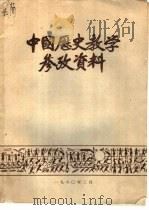 中國历史教学
参攷資料
一九七〇年三月